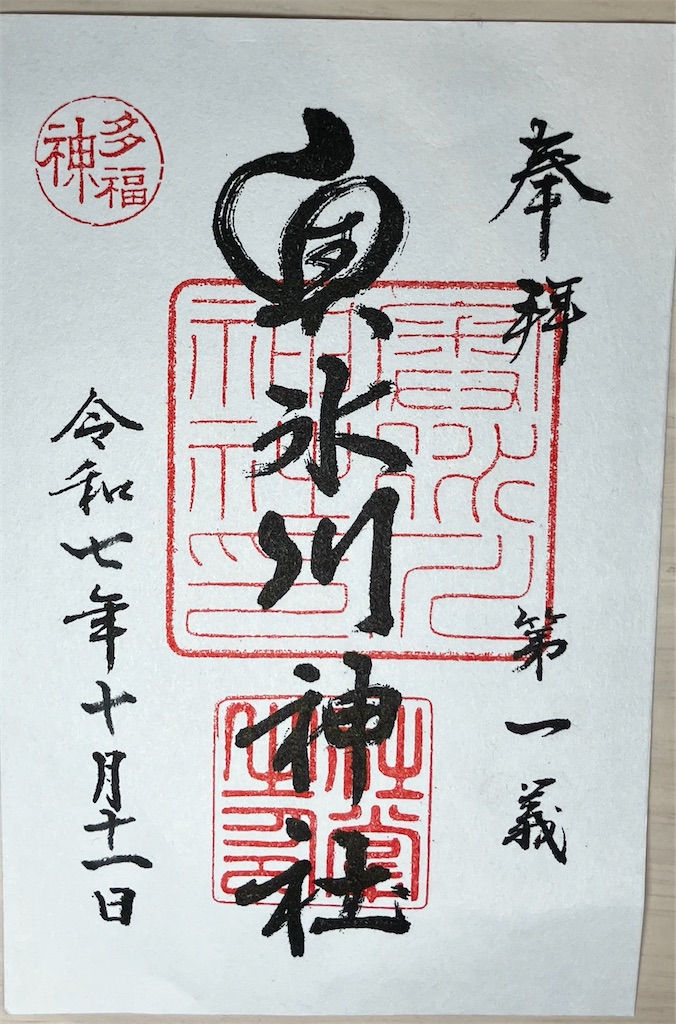 奉拝 第一義
奥氷川神社
多福神
令和七年十月十一日